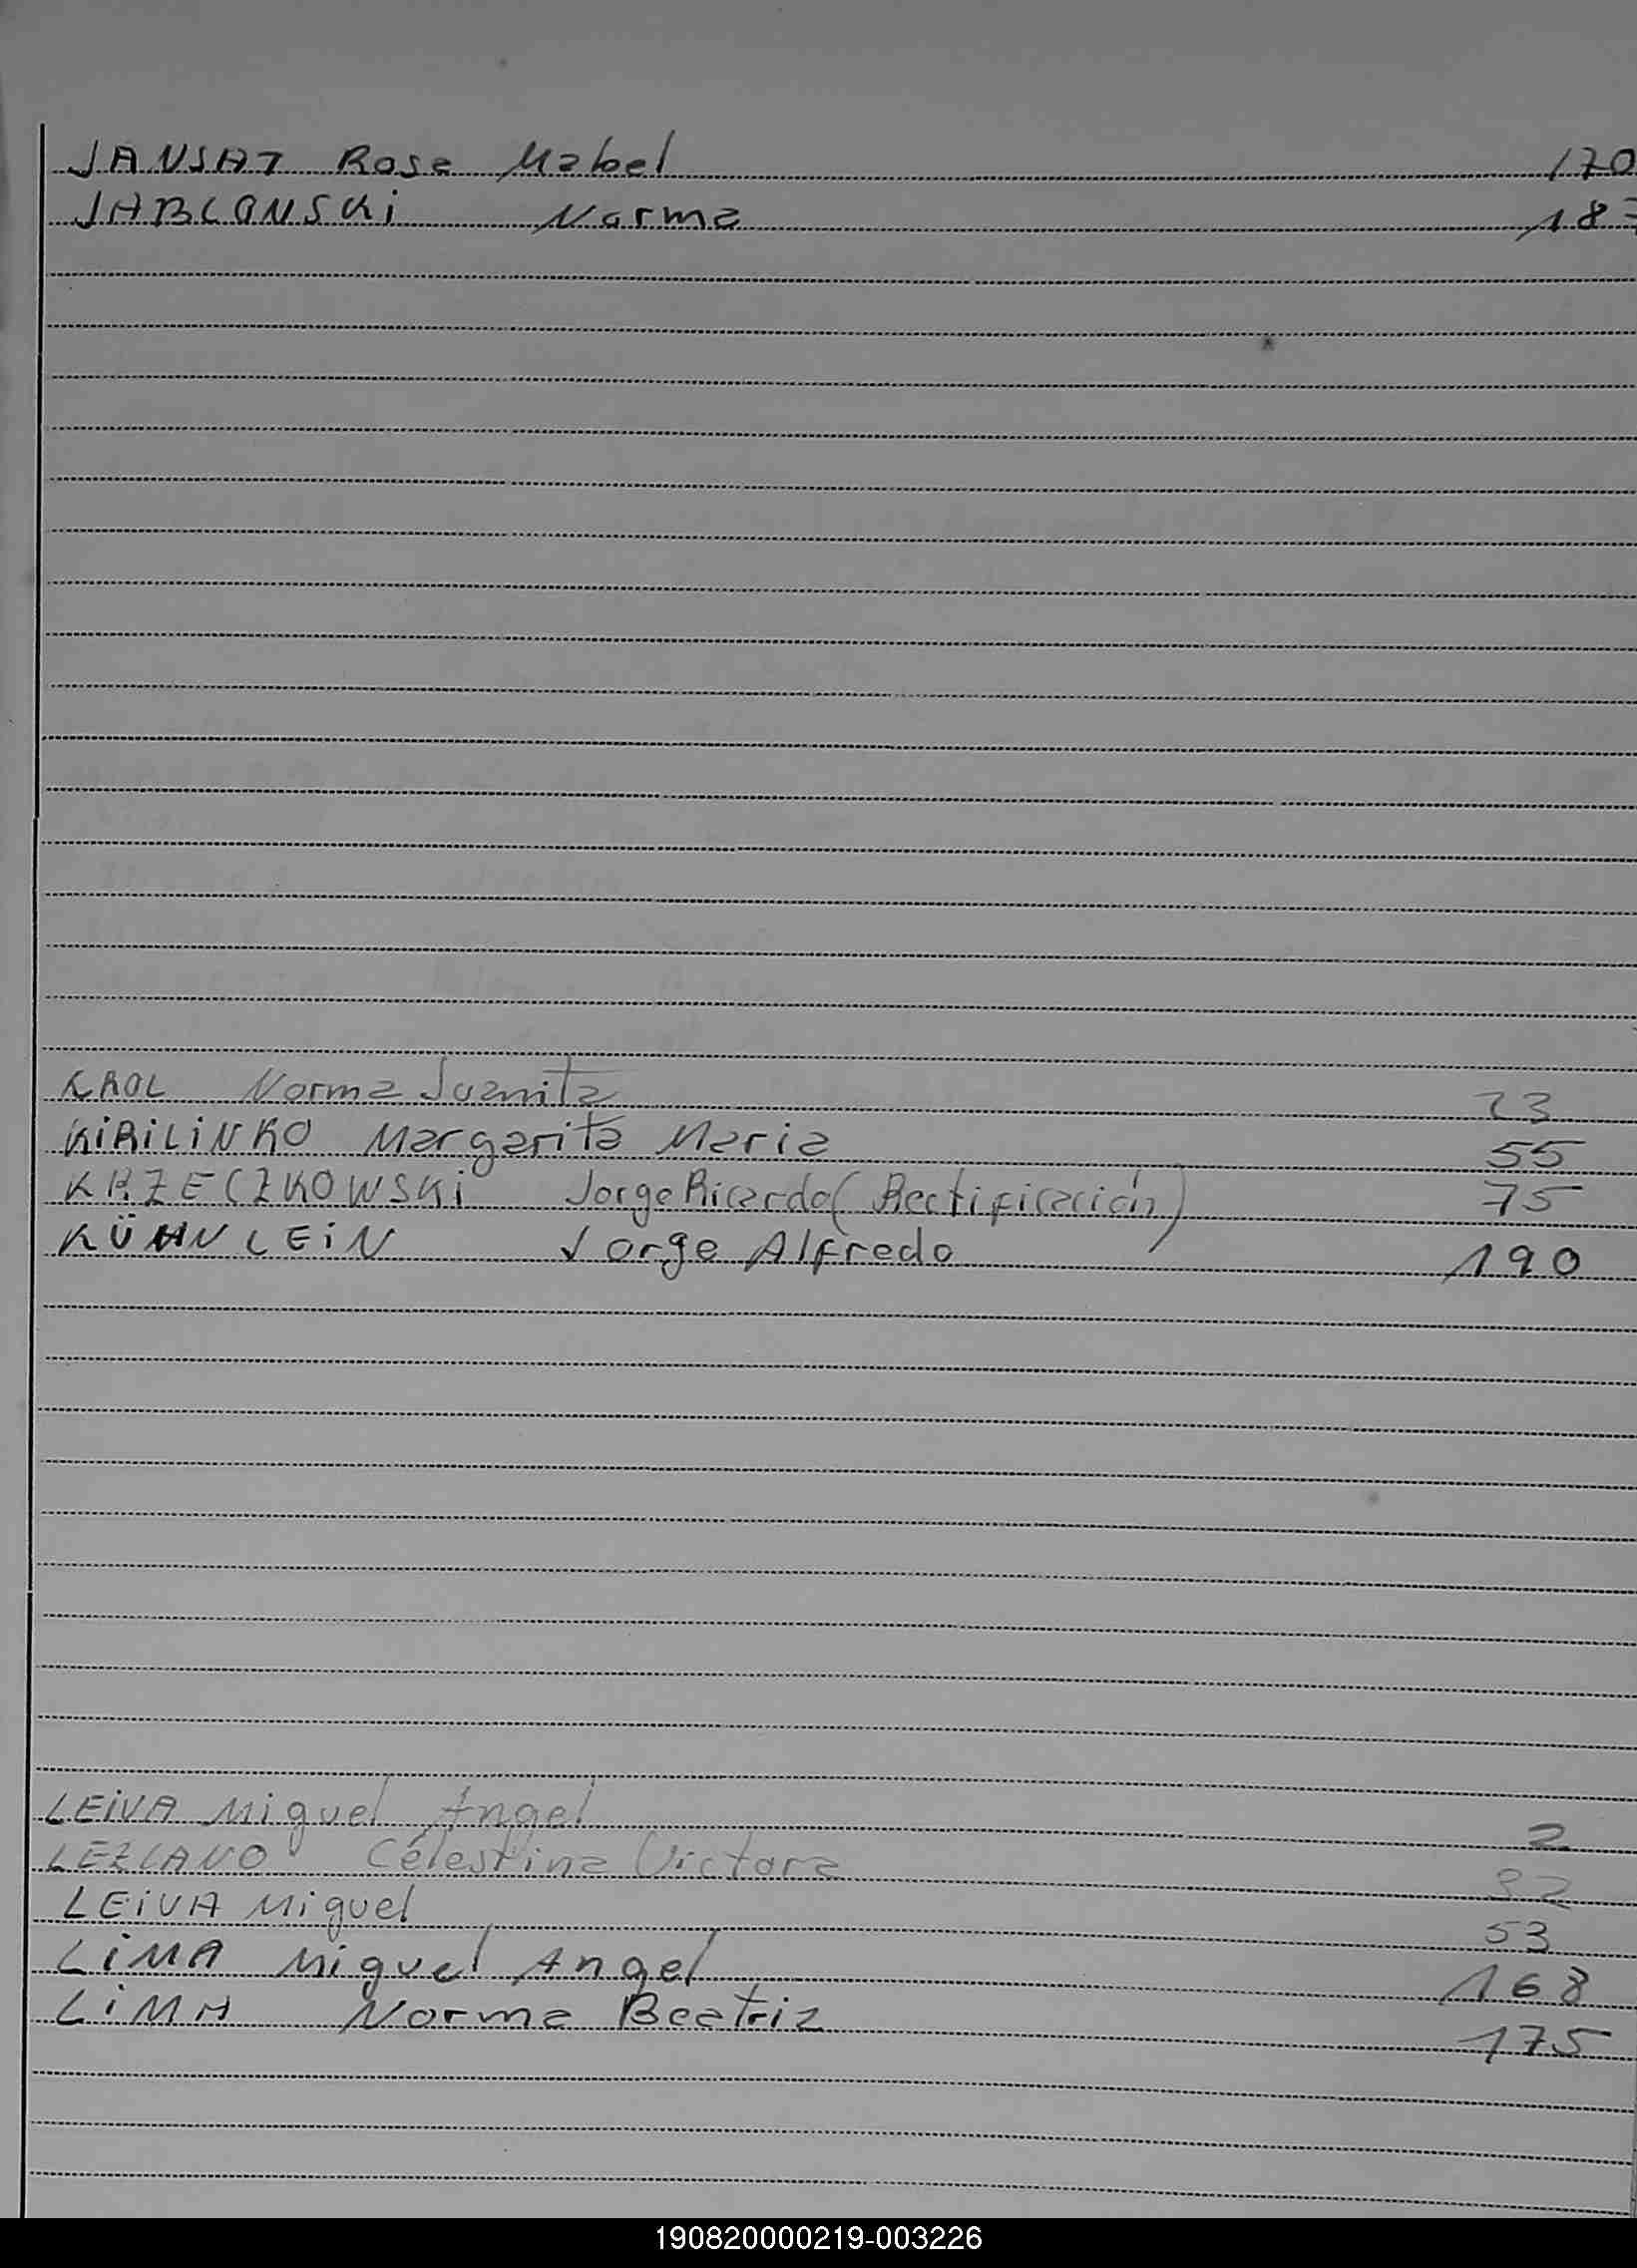 JANSAT Rosa Mabel 170
JABLONSKi Norma 187
KROL Norma Juanita 23
KiRiLiNKO Margarita Maria 55
KRZECZKOWSKi Jorge Ricardo (Rectificación) 75
KÜHNLEiN Jorge Alfredo 190
LEiVA Miguel Angel 2
LEZCANO Celestina Victora 32
LEiVA Miguel 53
LiMA Miguel Angel 168
LiMA Norma Beatriz 175
190820000219-003226